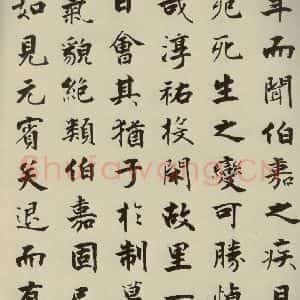 年而聞伯嘉之疾且
死生之變可勝悼
哉淳祐投閑故里一
日會其猶子於制
氣貌絕類伯嘉固
如見元賓矣退而有
Shufawang.CN